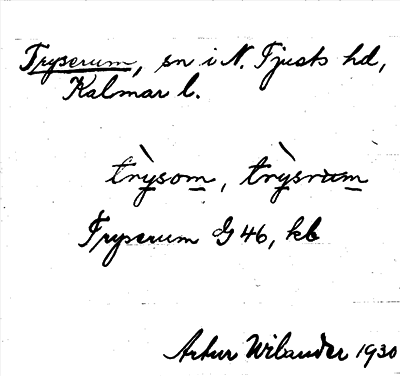 Tryserum, sn i N. Tjusts hd,
Kalmar l.
trỳsom, trỳsrum
Tryserum G 46, kb
Artur Wilander 1930